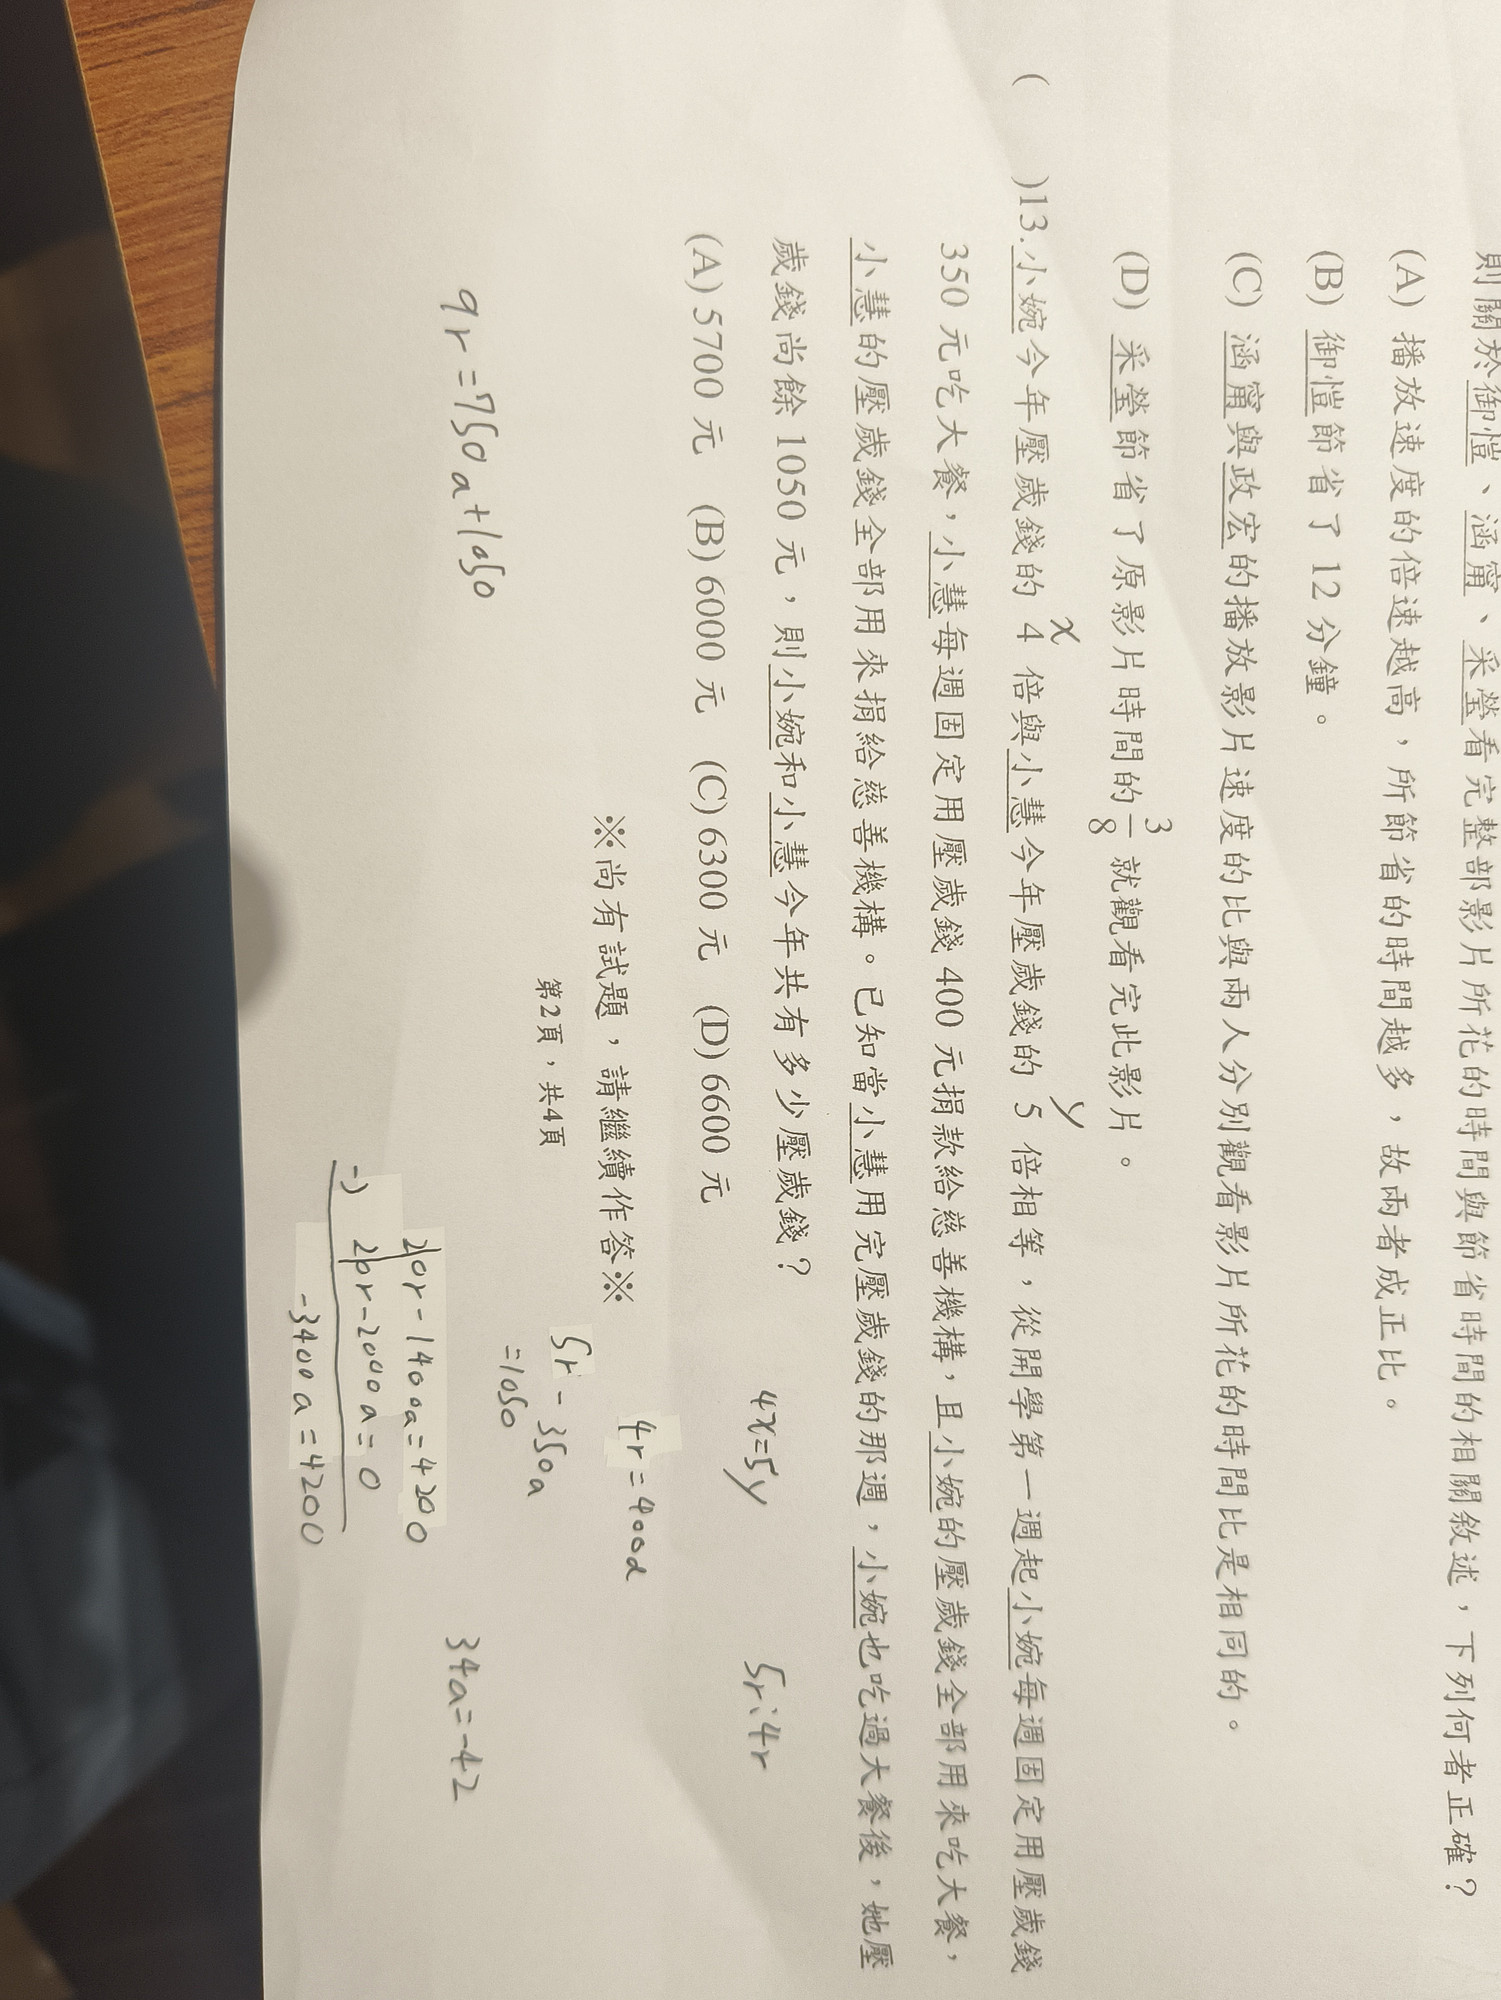 則關於御愷、涵甯、采瑩看完整部影片所花的時間與節省時間的相關敘述，下列何者正確？
(A) 播放速度的倍速越高，所節省的時間越多，故兩者成正比。
(B) 御愷節省了 12 分鐘。
(C) 涵甯與政宏的播放影片速度的比與兩人分別觀看影片所花的時間比是相同的。
(D) 采瑩節省了原影片時間的 3/8 就觀看完此影片。
x
y
( )13.小婉今年壓歲錢的 4 倍與小慧今年壓歲錢的 5 倍相等，從開學第一週起小婉每週固定用壓歲錢
350 元吃大餐，小慧每週固定用壓歲錢 400 元捐款給慈善機構，且小婉的壓歲錢全部用來吃大餐，
小慧的壓歲錢全部用來捐給慈善機構。已知當小慧用完壓歲錢的那週，小婉也吃過大餐後，她壓
歲錢尚餘 1050 元，則小婉和小慧今年共有多少壓歲錢？
(A) 5700 元 (B) 6000 元 (C) 6300 元 (D) 6600 元
4x=5y
5r:4r
※尚有試題，請繼續作答※
4r=400a
第2頁，共4頁
5r-350a
=1050
9r=750a+1050
34a=-42
20r-1400a=4200
-) 20r-2000a=0
-3400a=4200